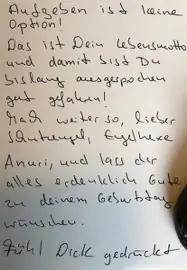 Aufgeben ist keine
Option!
Das ist Dein Lebensmotto
und damit bist Du
bislang ausgesprochen
gut gefahren!
Mach weiter so, lieber
Schutzengel, Engelhexe
Anuri, und lass dir
alles erdenklich Gute
zu deinem Geburtstag
wünschen.
Fühl Dick gedrückt